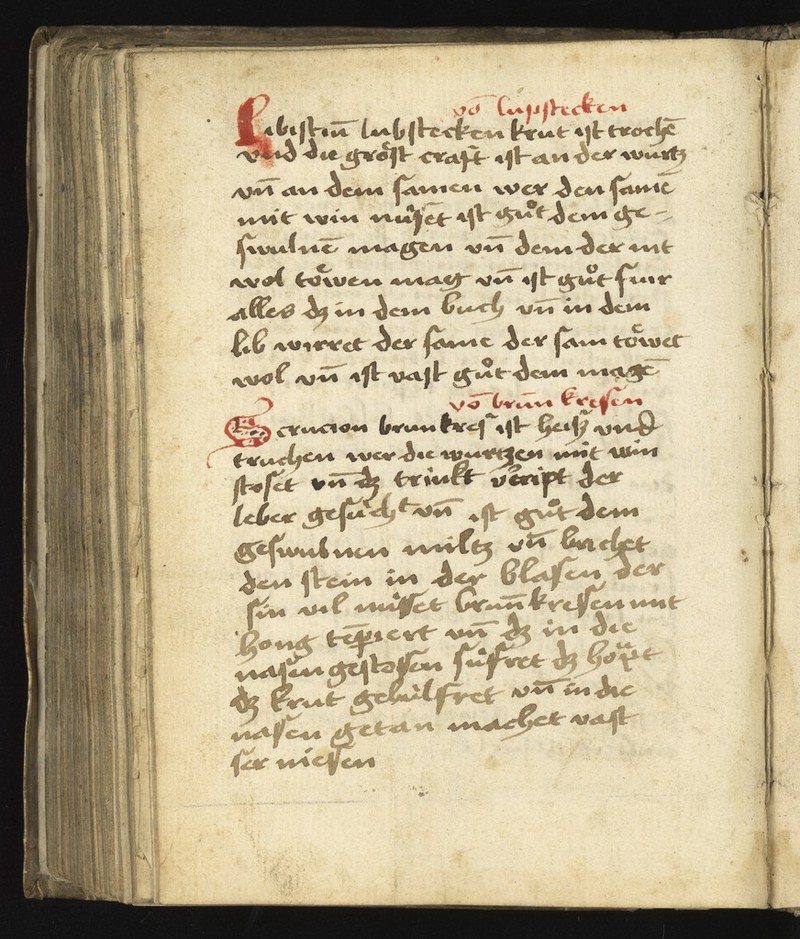 vō lupstecken
Libistiū lubstecken krut ist trochē
vnd die gröst craft ist an der wurtz
vn̄ an dem samen wer den samē
mit win nüset ist gůt dem ge-
swulnē magen vn̄ dem der nit
wol töwen mag vn̄ ist gůt fuir
alles dz in dem buch vn̄ in dem
lib wirret der same der sam töwet
wol vn̄ ist vast gůt dem magē
vō brun̄ kressen
crucion brunkres ist heiß vnd
truchen wer die wurtzen mit win
stoset vn̄ dz trinkt der
leber gesücht vn̄ ist gůt dem
geswulnen miltz vn̄ brichet
den stein in der blasen der
sin vil nüsset brun̄kressen mit
hong tēpiert vn̄ dz in die
nasen gestossen süfret dz höpt
dz krut gebülfret vn̄ in die
nasen getan machet vast
ser niessen